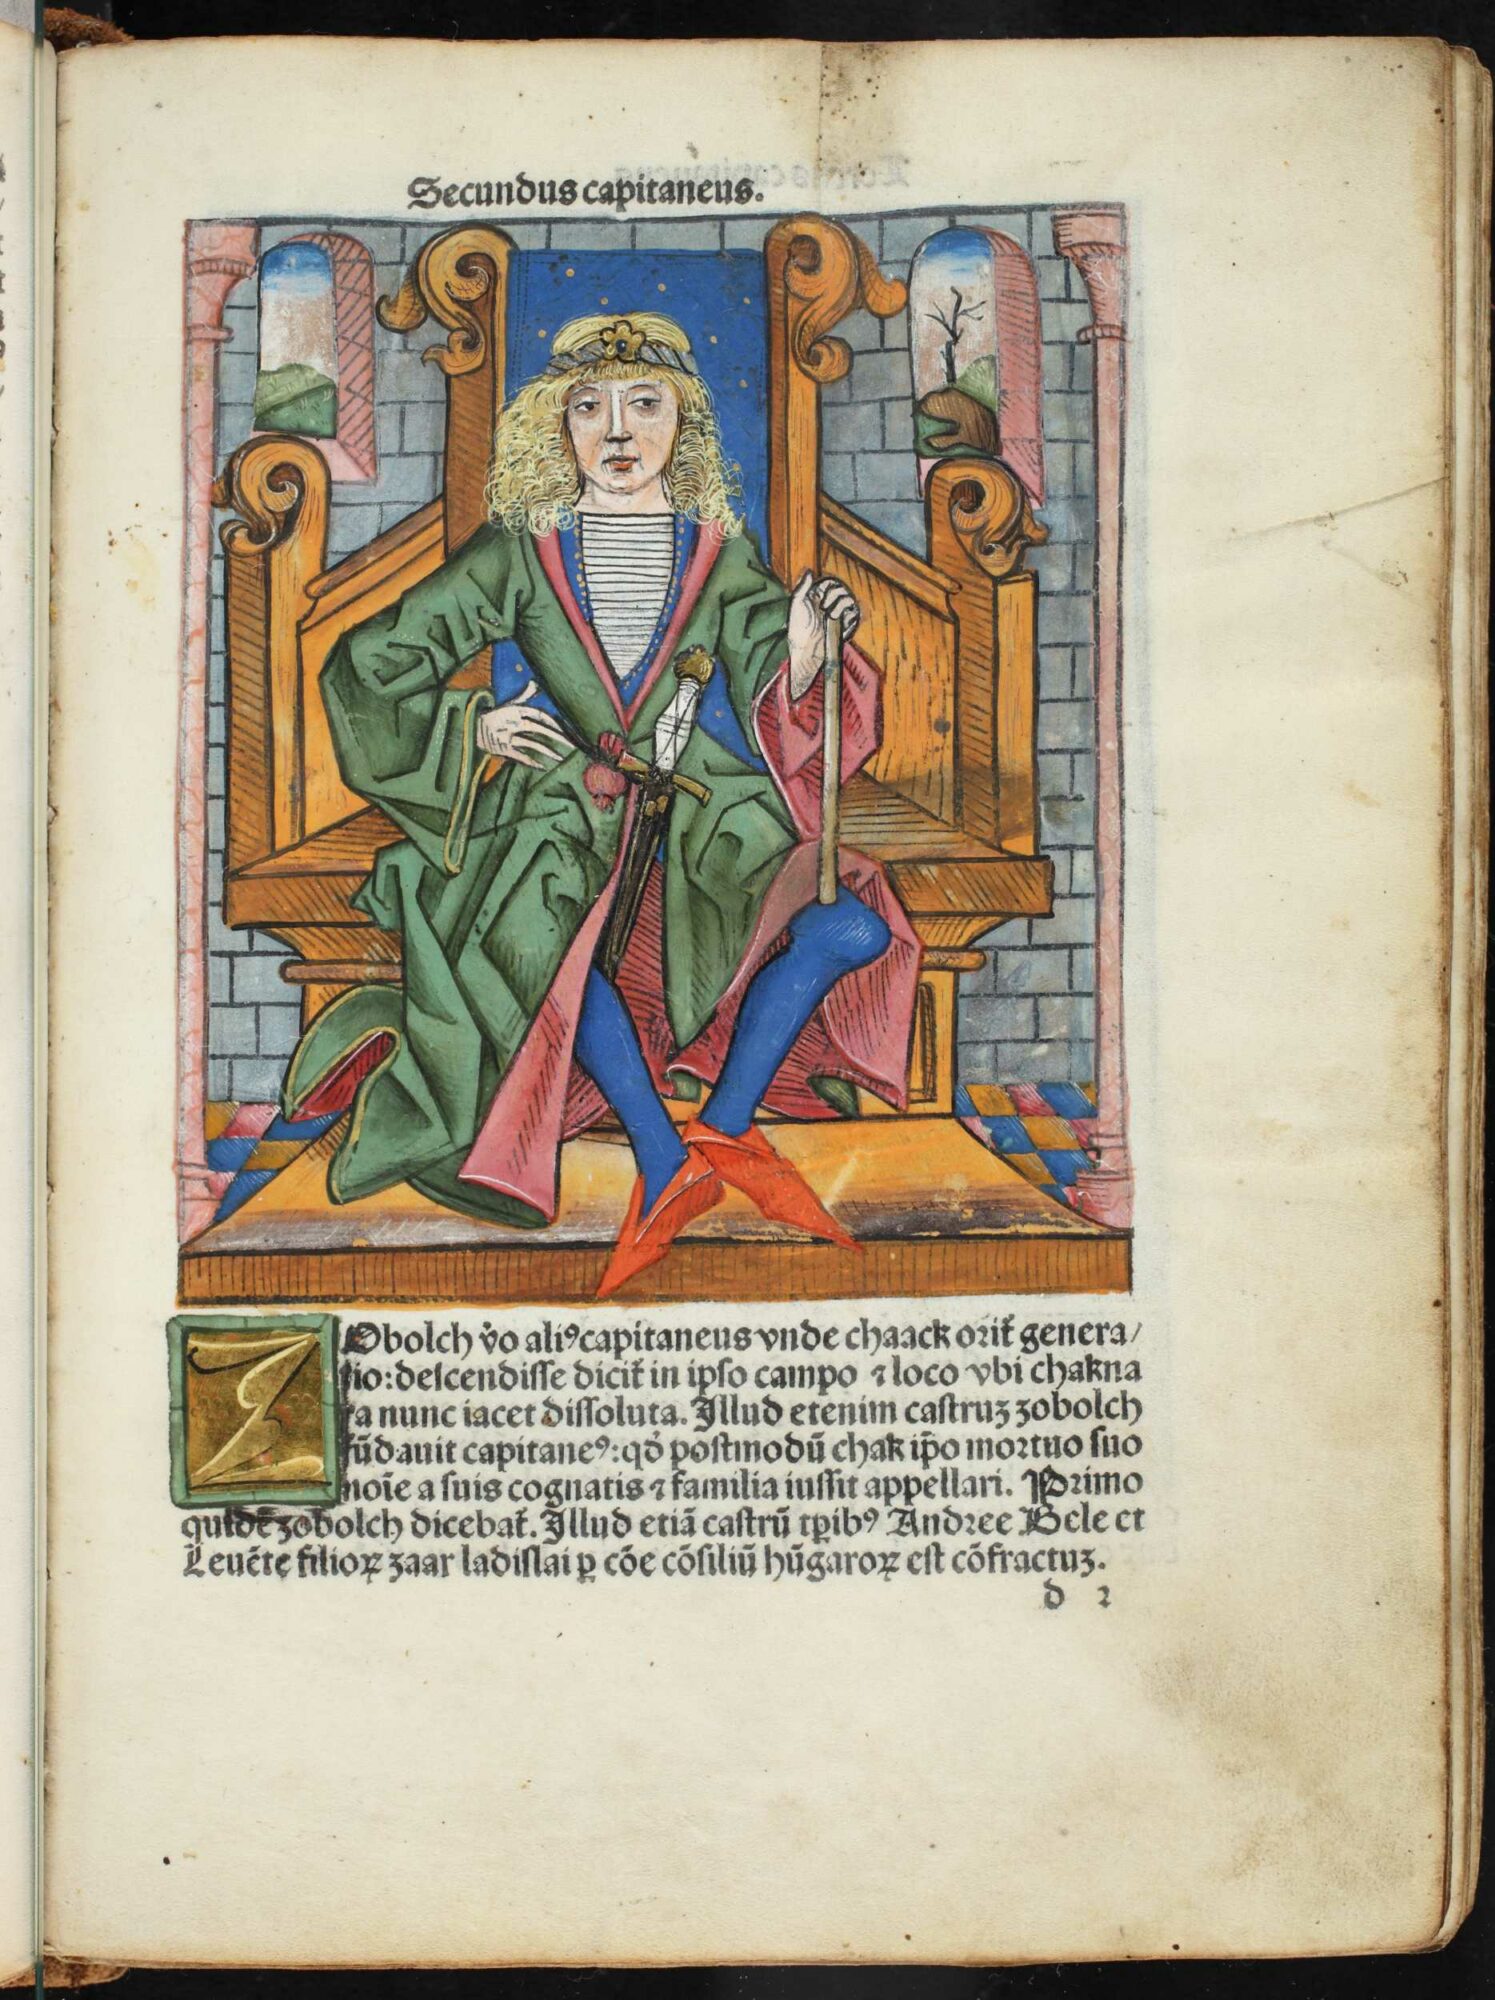 Secundus capitaneus.
ZObolch v̄o aliꝰ capitaneus vnde chaack orit̃ genera/
tio: descendisse dicit̃ in ipso campo ⁊ loco vbi chakna
ra nunc iacet dissoluta. Illud etenim castruꝫ ʒobolch
fũdauit capitaneꝰ: qđ postmodũ chak ip̃o mortuo suo
noĩe a suis cognatis ⁊ familia iussit appellari. Primo
quidẽ ʒobolch dicebat̃. Illud etiã castrũ tꝑibꝰ Andree Bele et
Leuẽte filioꝝ ʒaar ladislai ꝑ cõe cõsiliũ hũgaroꝝ est cõfractuꝫ.
d 2